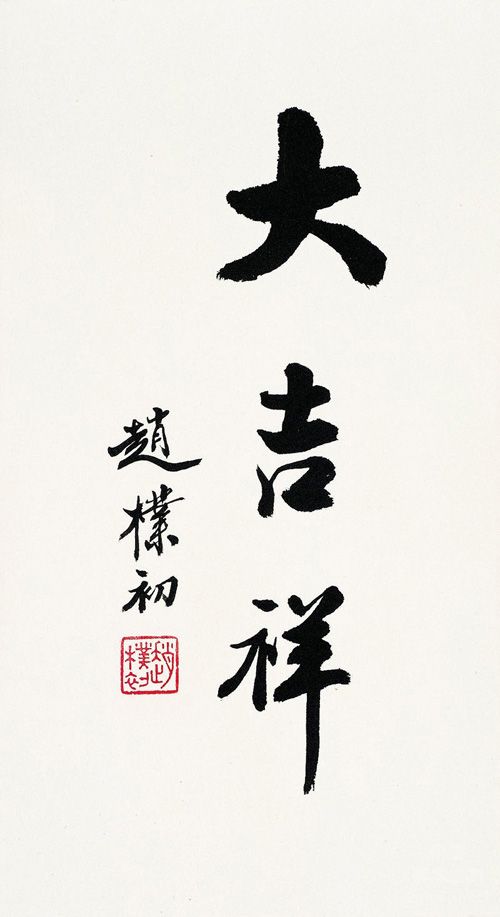 大吉祥
趙樸初
趙樸初